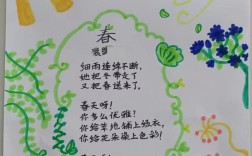 春
细雨连绵不断，
她把冬带走了
又把春送来了。
春天呀！
你多么优雅！
你给草地铺上绿衣，
你给花朵染上色彩！